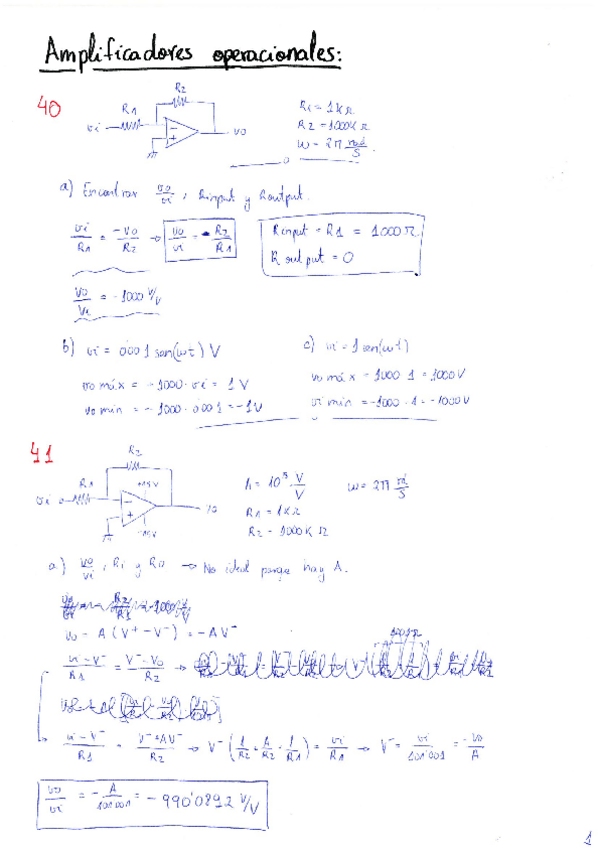 Amplificadores operacionales:
40
R2
R1
vi
vo
R1 = 1KΩ
R2 = 1000KΩ
ω = 2π rad/s
a) Encontrar vo/vi, Rinput y Routput.
vi/R1 = -vo/R2 → vo/vi = -R2/R1
Rinput = R1 = 1000Ω
Routput = 0
vo/vi = -1000 V/V
b) vi = 0'001 sen(ωt) V
vo máx = -1000· vi = 1V
vo min = -1000· 0'001 = -1V
c) vi = 1 sen(ωt)
vo máx = 1000·1 = 1000V
vi min = -1000·1 = -1000V
41
R2
R1
+15V
-15V
vi
vo
A = 10⁵ V/V
R1 = 1KΩ
R2 = 1000KΩ
ω = 2π rad/s
a) vo/vi, Ri y Ro → No ideal porque hay A.
vo = A(V⁺ - V⁻) = -AV⁻
vi - V⁻/R1 = V⁻ - Vo/R2 →
vi - V⁻/R1 = V⁻ + AV⁻/R2 → V⁻(1/R2 + A/R2 + 1/R1) = vi/R1 → V⁻ = vi/101'001 = -vo/A
vo/vi = -A/101'001 = -990'0892 V/V
1